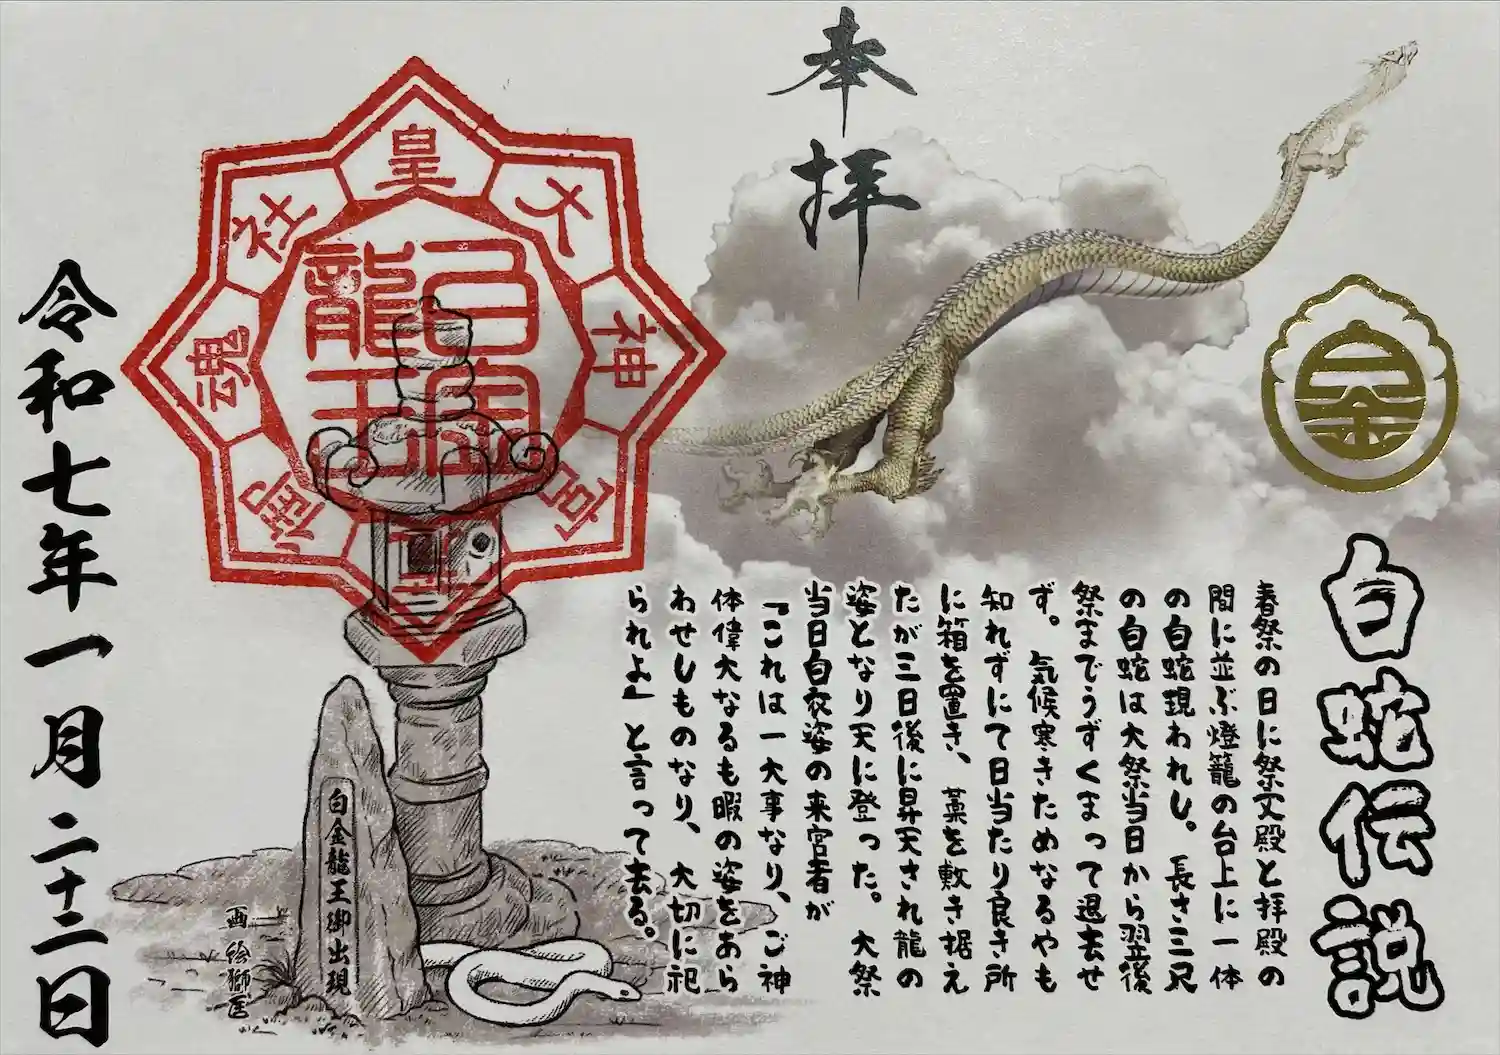 奉拝
白蛇伝説
春祭の日に祭文殿と拝殿の
間に並ぶ燈籠の台上に一体
の白蛇現われし。長さ三尺
の白蛇は大祭当日から翌後
祭までうずくまって退去せ
ず。気候寒きためなるやも
知れずにて日当たり良き所
に箱を置き、藁を敷き据え
たが三日後に昇天され龍の
姿となり天に登った。大祭
当日白衣姿の来宮者が
「これは一大事なり、ご神
体偉大なるも暇の姿をあら
わせしものなり、大切に祀
られよ」と言って去る。
皇大神宮
社
魂
龍王
白金龍王御出現
画
令和七年一月二十二日